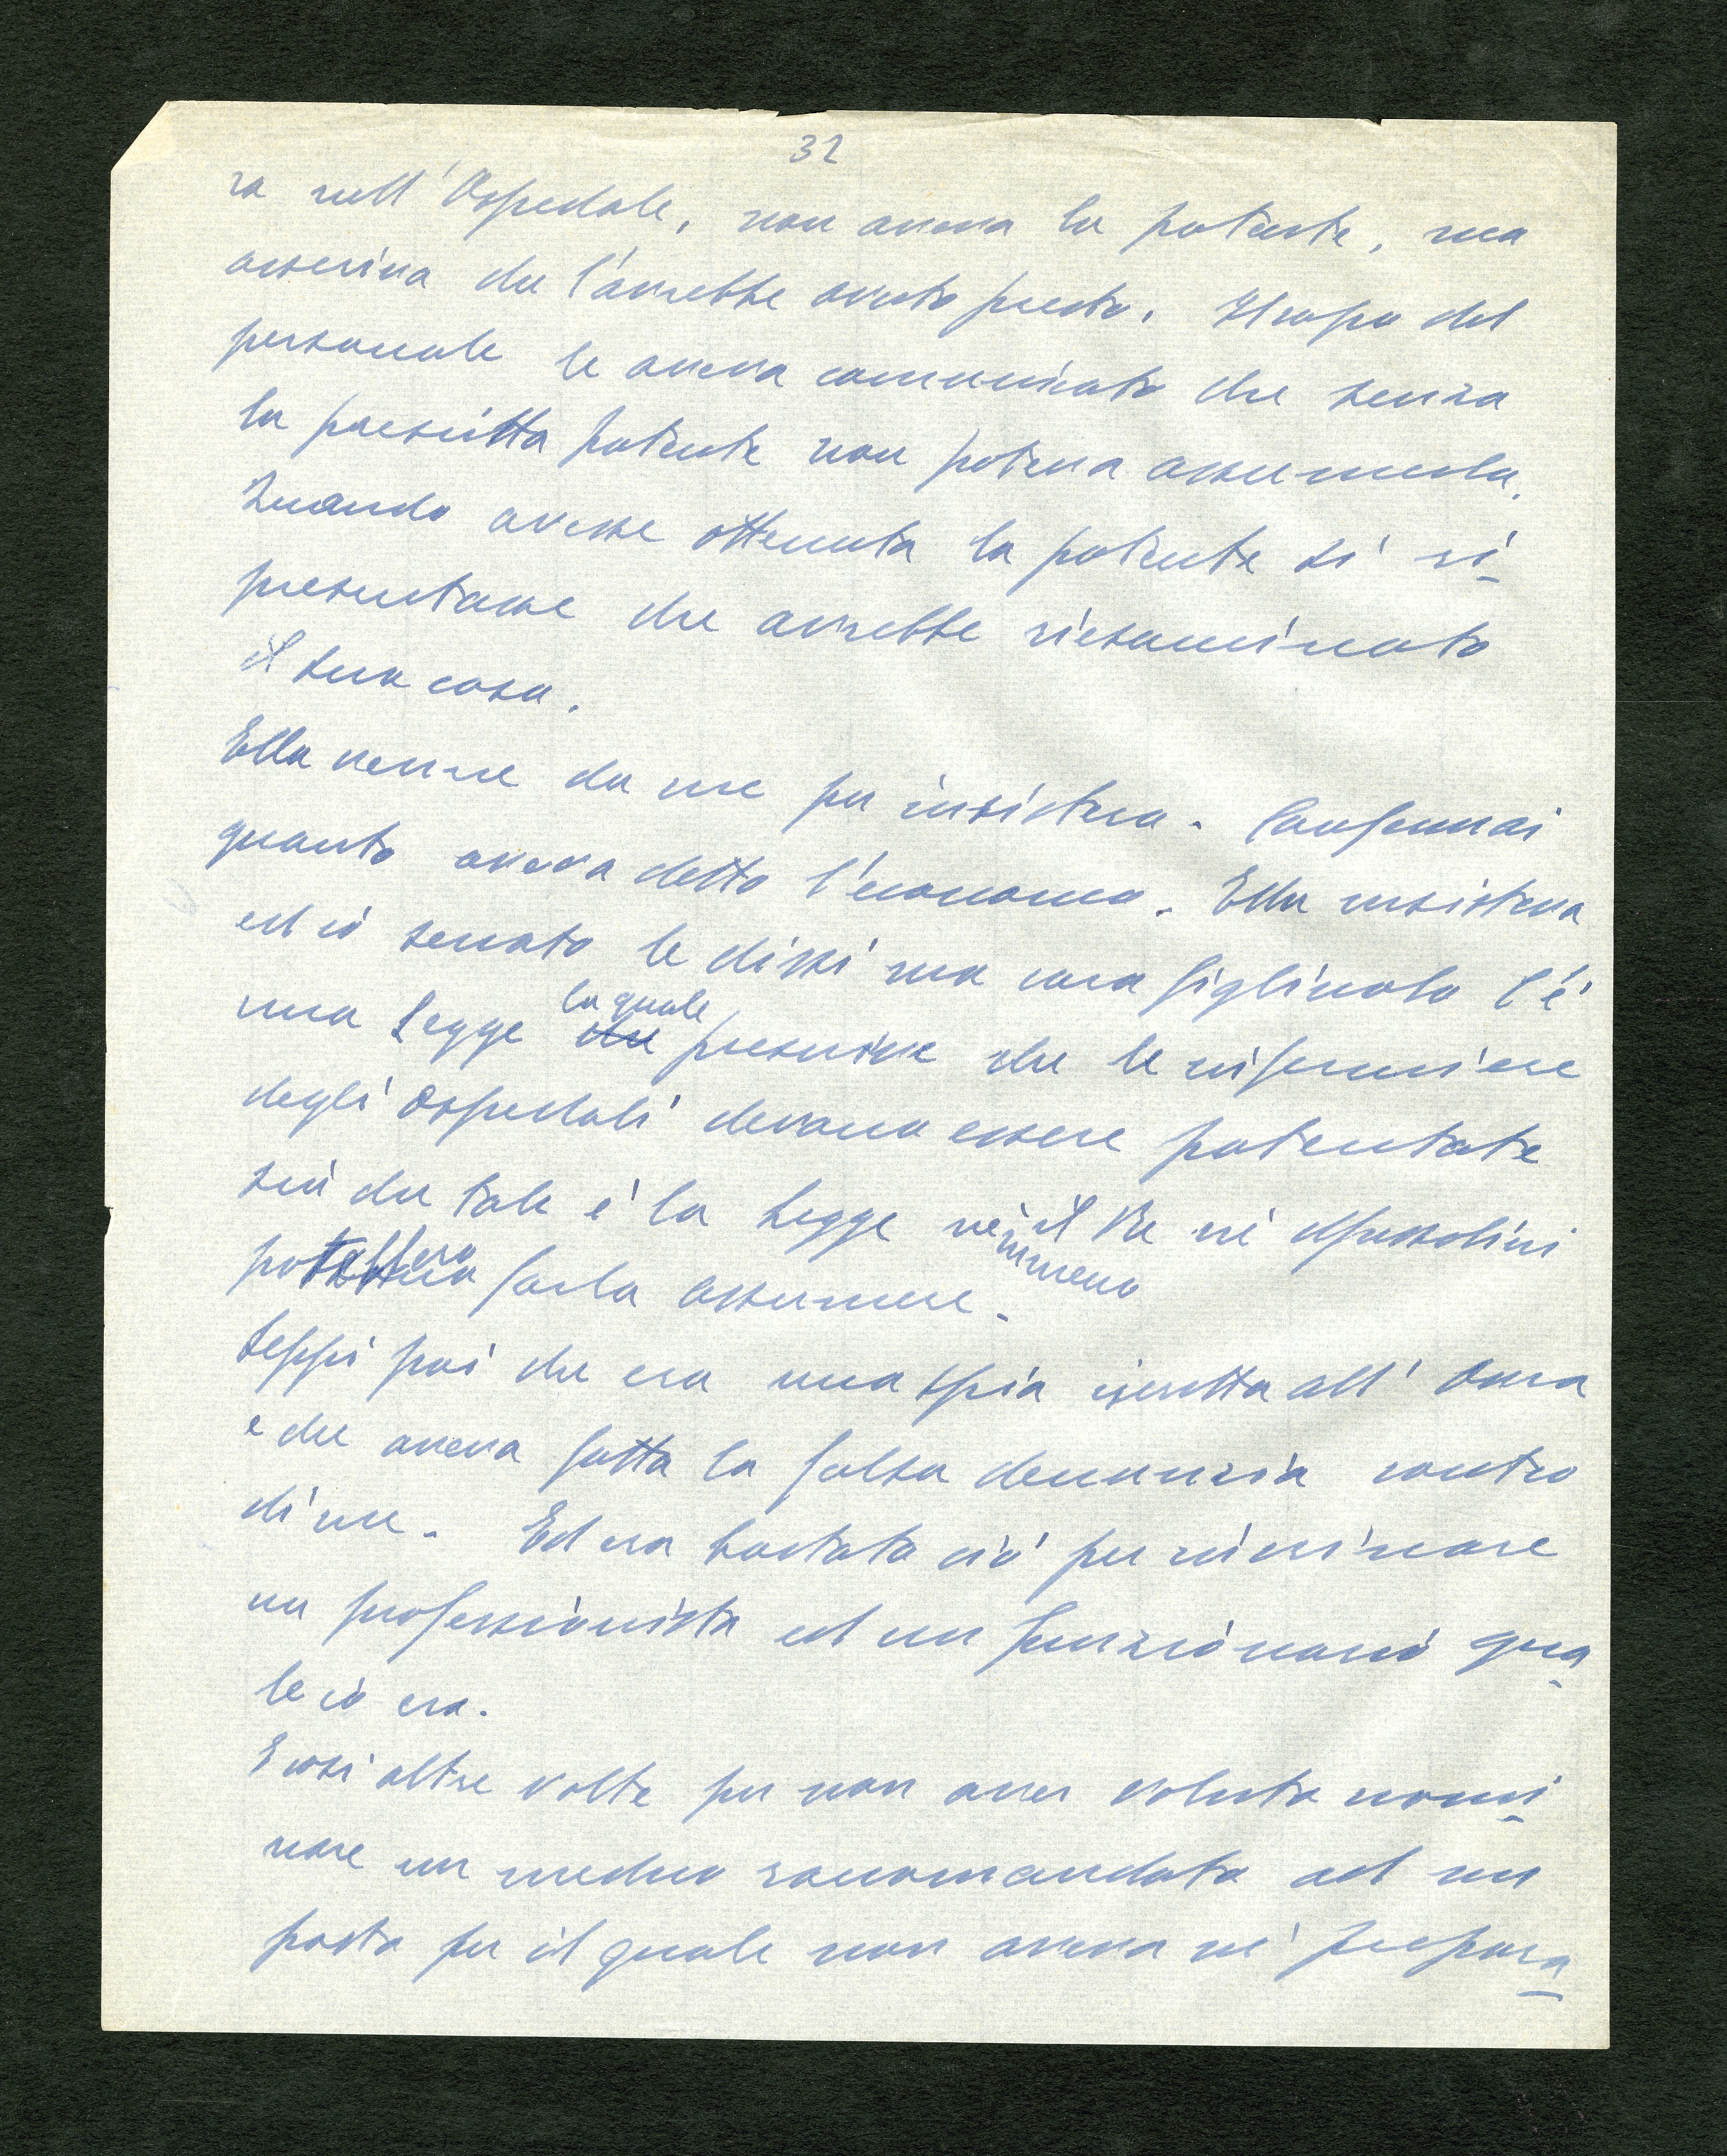 32
ra nell'Ospedale, non aveva la patente, ma
asseriva che l'avrebbe avuta presto. Il capo del
personale le aveva comunicato che senza
la prescritta patente non poteva assumerla.
Quando avesse ottenuta la patente si ri-
presentasse che avrebbe riesaminato
il suo caso.
Ella venne da me per insistere. Confermai
quanto aveva detto l'economo. Ella insisteva
ed io seccato le dissi ma cara figliuola c'è
la quale
una Legge che prescrive che le infermiere
degli Ospedali devono essere patentate
sicché tale è la Legge nè il Re nè Mussolini
nemmeno
potessero farla assumere.
Seppi poi che era una spia iscritta all'Ovra
e che aveva fatta la falsa denunzia contro
di me. Ed era bastato ciò per rovinare
un professionista ed un funzionario qua-
le io ero.
E così altre volte per non aver voluto nomi-
nare un medico raccomandato ad un
posto per il quale non aveva nè prepara-